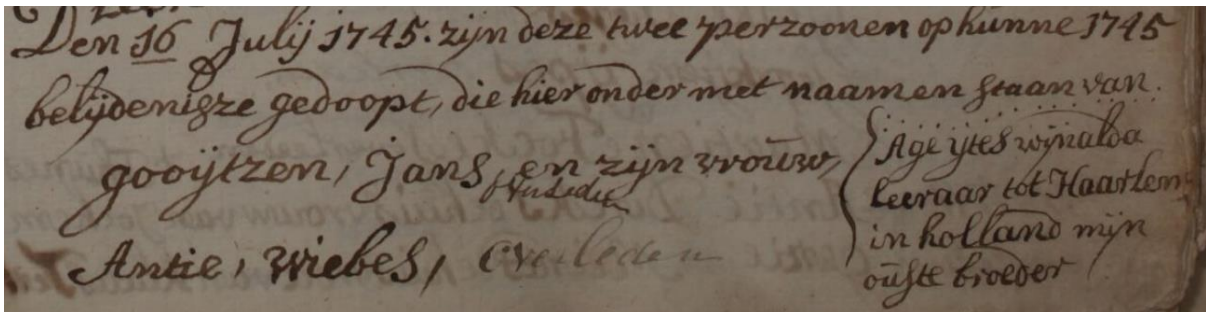 Den 16 Julij 1745. zijn deze twee perzoonen op hunne 1745
belijdenisze gedoopt, die hier onder met naamen staan van.
gooijtzen, Jans, en zijn vrouw,
overleden
Antie, wiebes, overleden
Age ijtes wijnalda
leeraar tot Haarlem
in holland mijn
oudste broeder